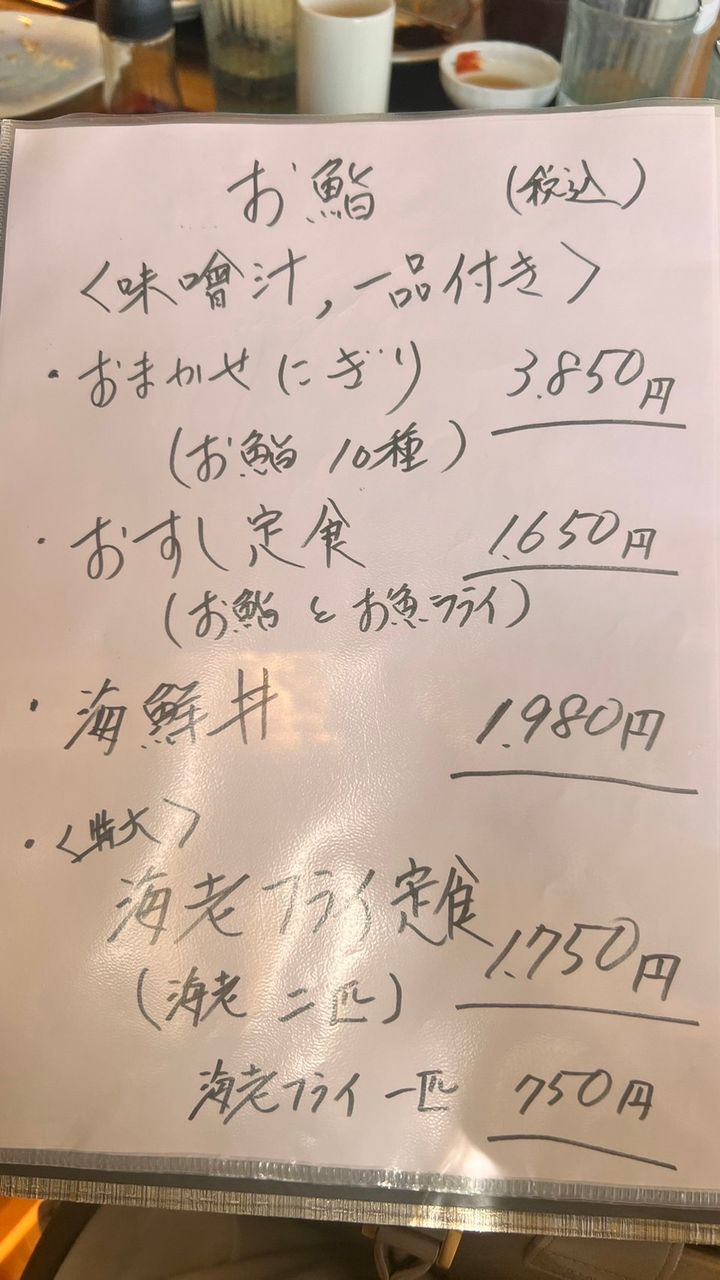 お鮨 (税込)
〈味噌汁,一品付き〉
・おまかせにぎり 3.850円
(お鮨 10種)
・おすし定食 1.650円
(お鮨とお魚フライ)
・海鮮丼 1.980円
・〈特大〉
海老フライ定食 1.750円
(海老二匹)
海老フライ一匹 750円